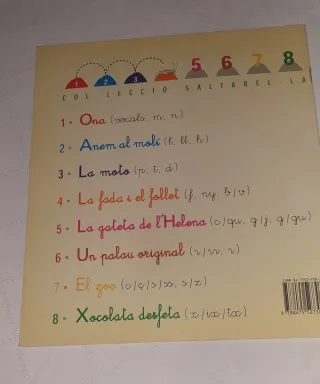 1 2 3 5 6 7 8
COL·LECCIÓ SALTAREL·LA
1 • Ona (vocals, m, n)
2 • Anem al molí (l, ll, h)
3 • La moto (p, t, d)
4 • La fada i el follet (f, ny, b/v)
5 • La gateta de l'Helena (c/qu, g/j, g/gu)
6 • Un palau original (r/rr, r)
7 • El zoo (c/ç/s/ss, s/z)
8 • Xocolata desfeta (x/ix/tx)